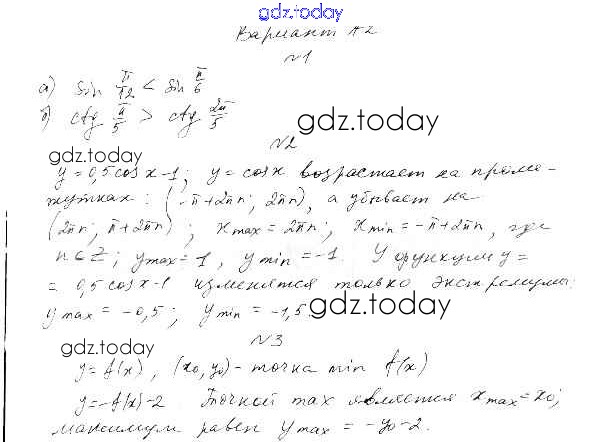 gdz.today
Вариант А2
№1
а) sin π/12 < sin π/6
б) ctg π/5 > ctg 2π/5
gdz.today
№2
gdz.today
y=0,5cos x-1; y=cosx возрастает на проме-
жутках: (-π+2πn; 2πn), а убывает на
(2πn; π+2πn); xmax=2πn; xmin=-π+2πn, где
n∈Z; ymax=1, ymin=-1. У функции y=
=0,5cosx-1 изменятся только экстремумы:
ymax=-0,5; ymin=-1,5.
gdz.today
№3
gdz.today
y=f(x), (x0,y0)-точка min f(x)
y=-f(x)-2 Точкой max является xmax=x0;
максимум равен ymax=-y0-2.